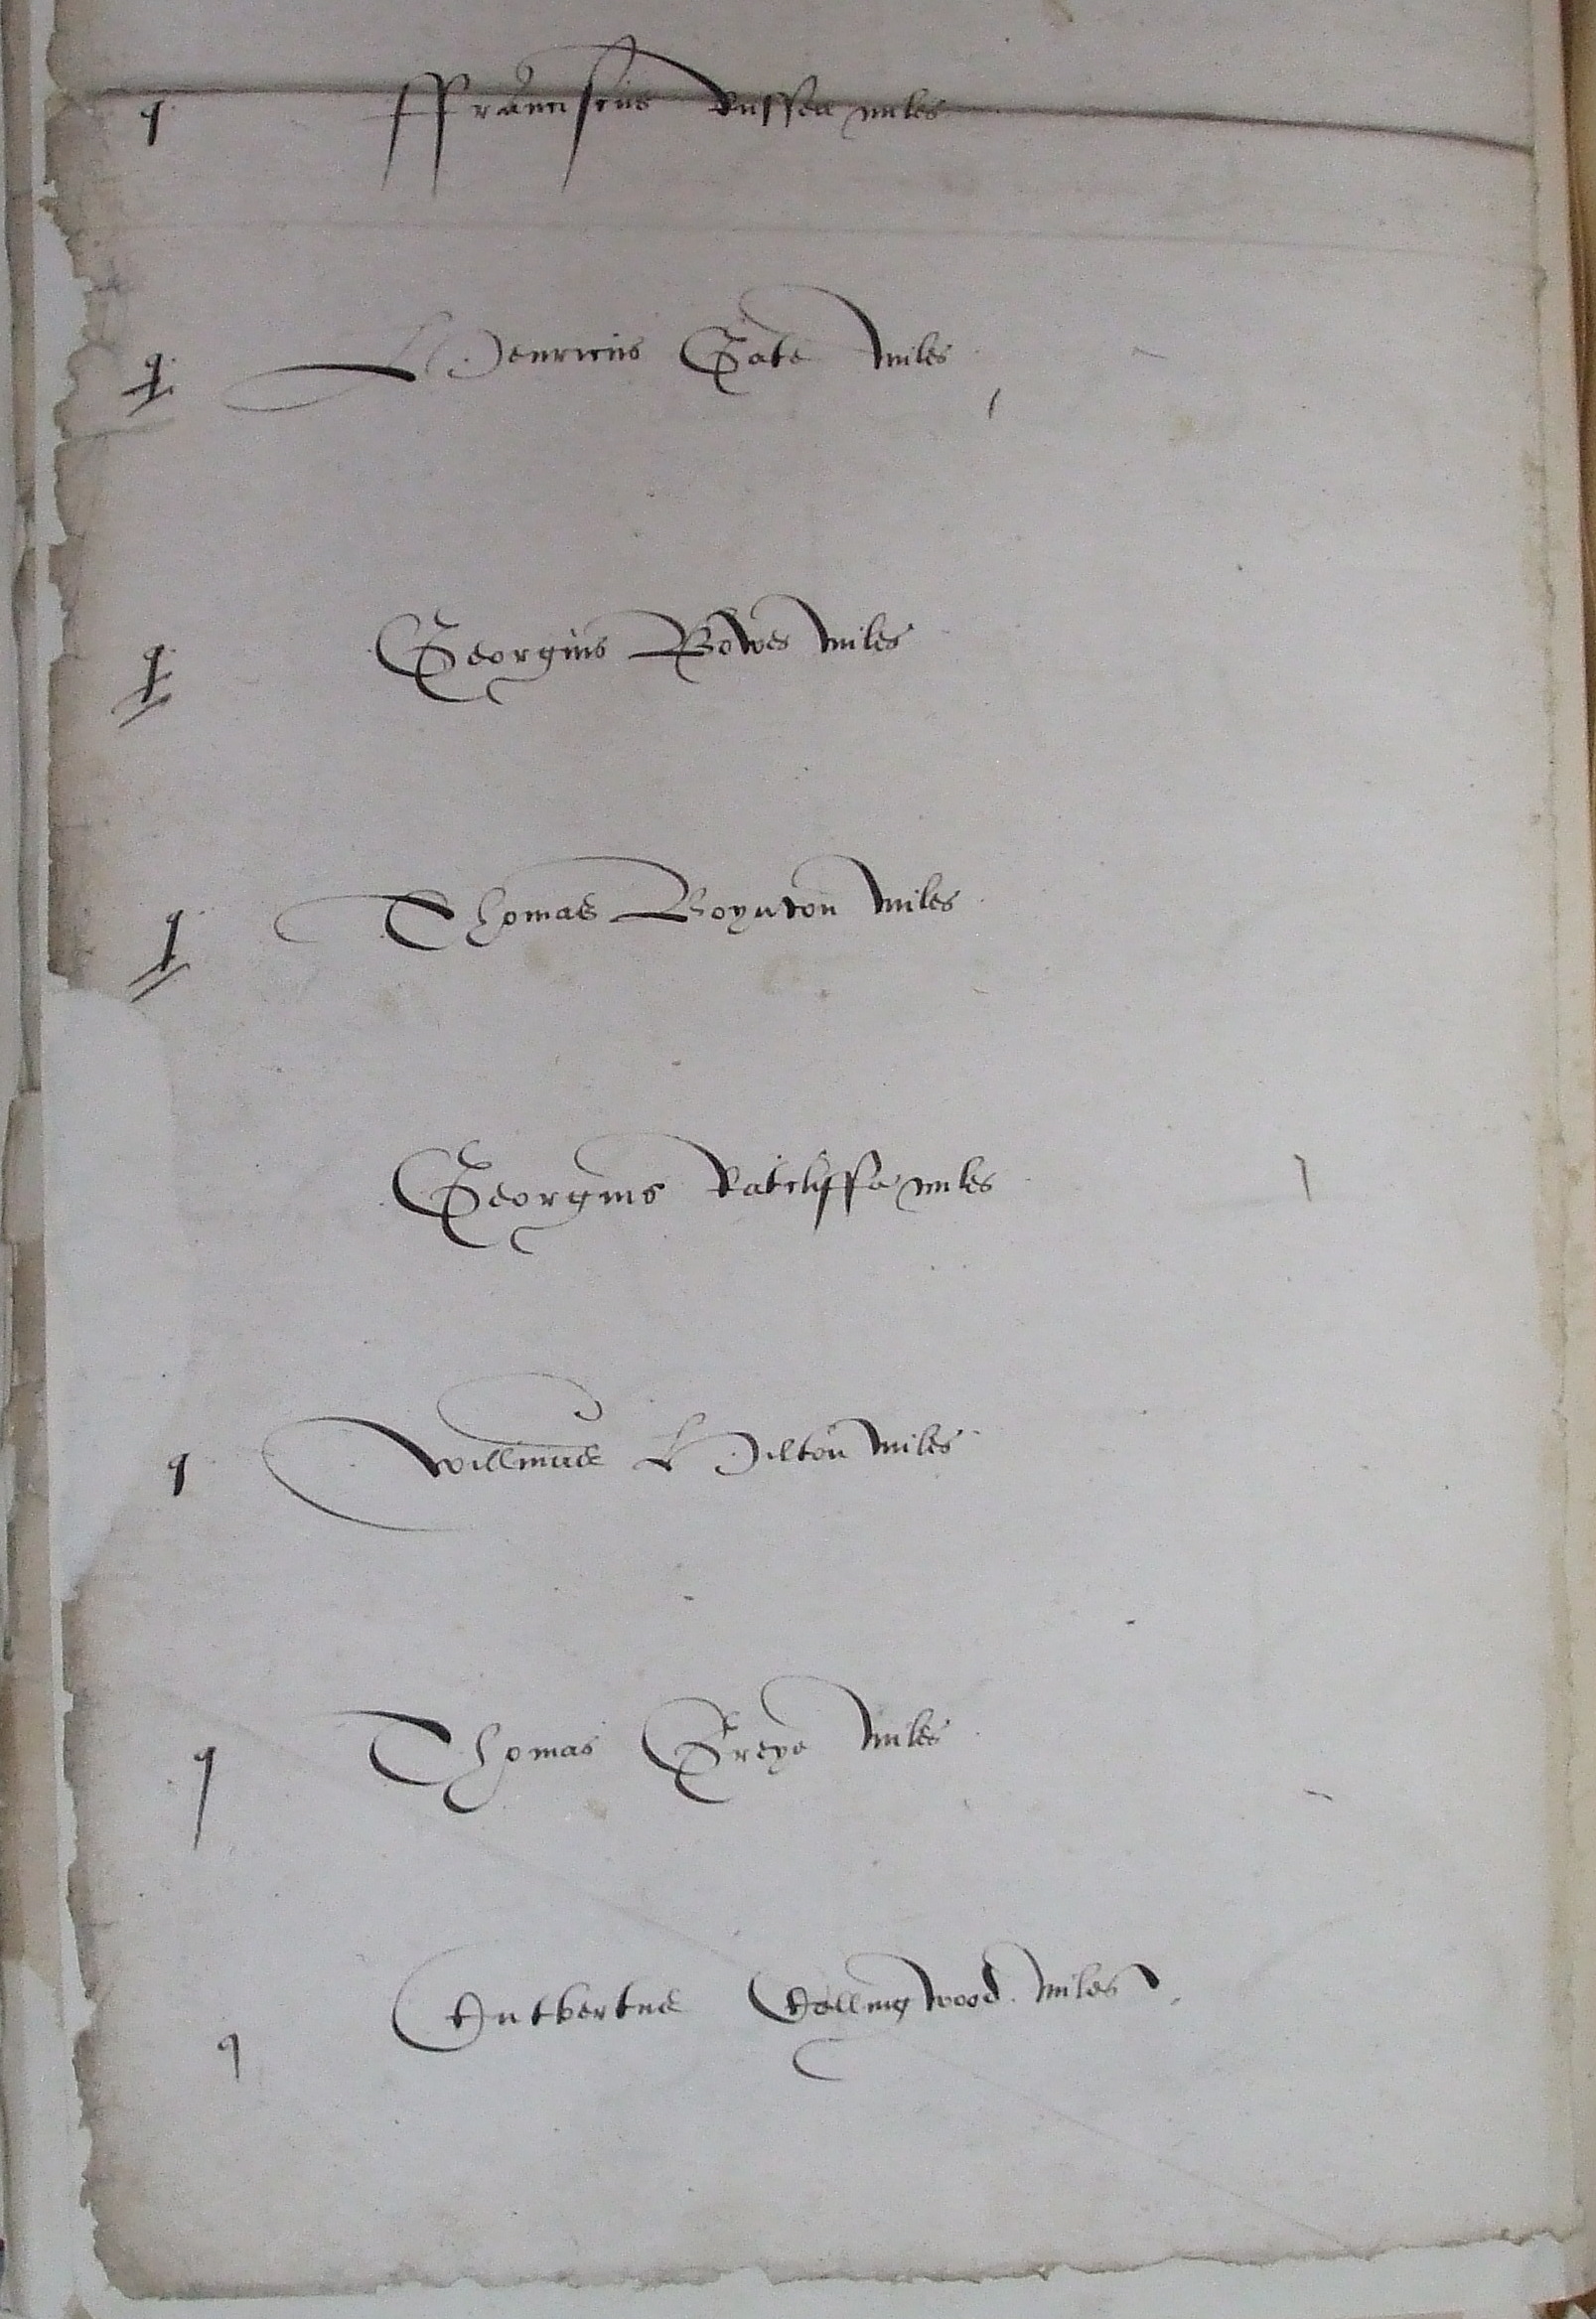 q ffranciscus Russell miles
q Henricus Gate miles
q Georgius Bowes miles
q Thomas Boynton miles
Georgius Ratcliffe miles
q Willmus Hilton miles
q Thomas Greye miles
q Cutbertus Collingwood miles